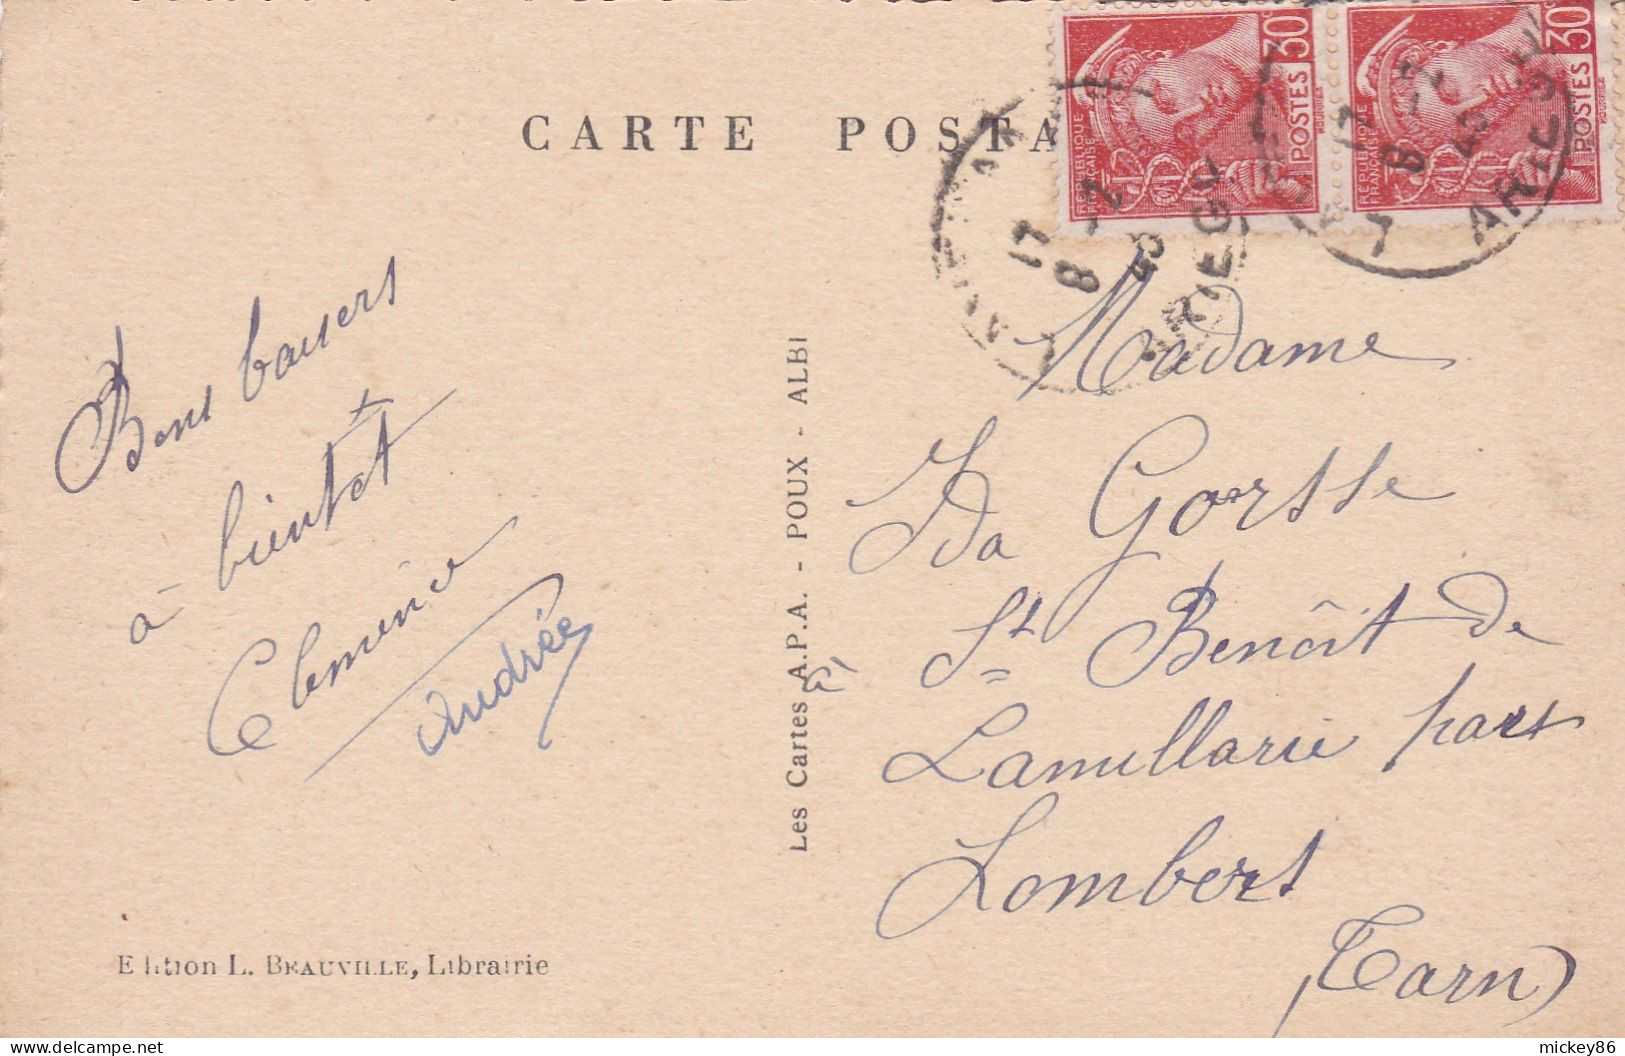 CARTE POSTA
30c
POSTES
RÉPUBLIQUE
FRANÇAISE
30c
POSTES
RÉPUBLIQUE
FRANÇAISE
17
8 -2
43
ARIEGE
17
8 -2
43
ARIEGE
Bons baisers
à bientôt
Clémence
Andrée
Les Cartes A.P.A. - POUX - ALBI
Madame
Ida Gorsse
à St Benoît de
Lamillarié par
Lombers
(Tarn)
Edition L. BEAUVILLE, Librairie
www.delcampe.net
mickey86